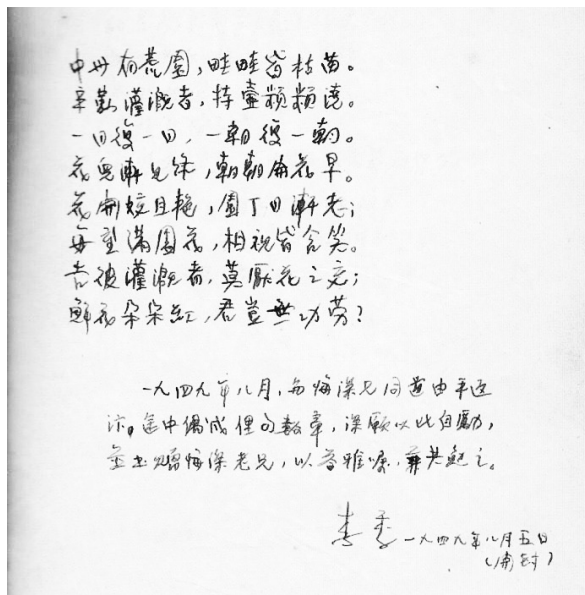 中州有荒園，畦畦皆枯苗。
辛勤灌溉者，持壺頻頻澆。
一日復一日，一朝復一朝。
花兒漸見綠，朝朝開花早。
花開姣且艳，園丁日漸老；
每望滿園花，相視皆含笑。
告彼灌溉者，莫厭花之充；
鮮花朵朵紅，君豈無功勞？
一九四九年八月，與悔深兄同道由平返
汴，途中偶成俚句数章，深願以此自勵，
並書贈悔深老兄，以答雅嘱，并共勉之。
李季 一九四九年八月五日
（開封）